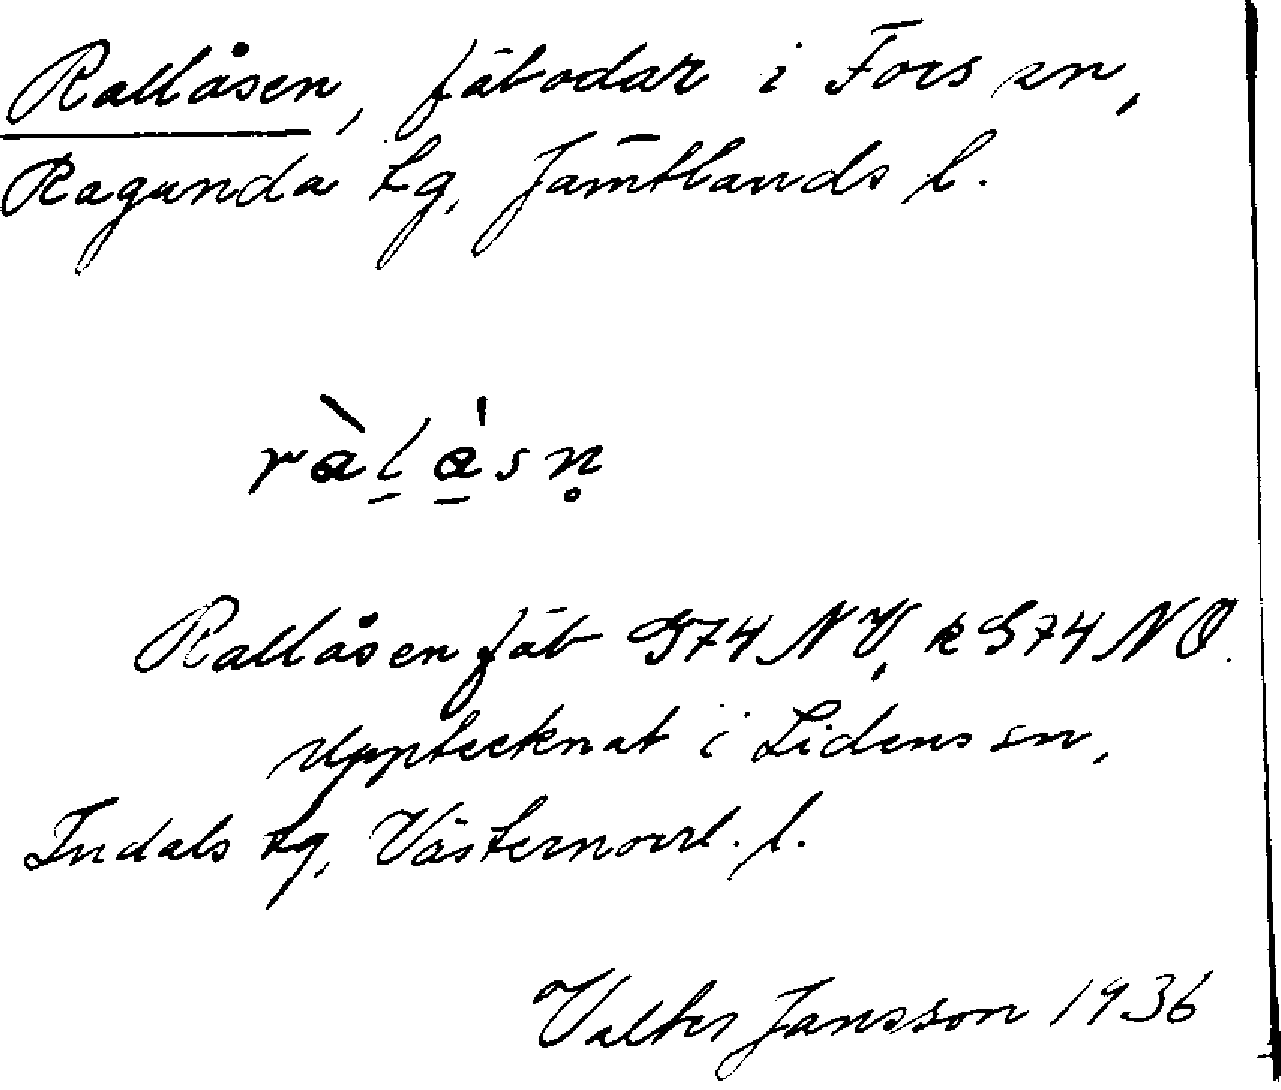 Rallåsen, fäbodar i Fors sn,
Ragunda tg, Jämtlands l.
ràḻa̱'sn̥
Rallåsen fäb G74 NV, k G74 NO.
Upptecknat i Lidens sn,
Indals tg, Västernorrl. l.
Valter Jansson 1936